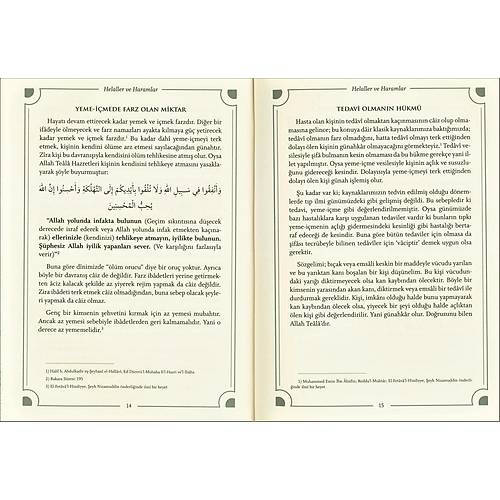 Helaller ve Haramlar
YEME-İÇMEDE FARZ OLAN MİKTAR
Hayatı devam ettirecek kadar yemek ve içmek farzdır. Diğer bir
ifâdeyle ölmeyecek ve farz namazları ayakta kılmaya güç yetirecek
kadar yemek ve içmek farzdır.¹ Bu kadar dahî yeme-içmeyi terk
etmek, kişinin kendini ölüme arz etmesi sayılacağından günahtır.
Zira kişi bu davranışıyla kendisini ölüm tehlikesine atmış olur. Oysa
Allah Teâlâ Hazretleri kişinin kendisini tehlikeye atmasını yasakla-
yarak şöyle buyurmuştur:
وَاَنْفِقُوا فٖي سَبٖيلِ اللّٰهِ وَلَا تُلْقُوا بِاَيْدٖيكُمْ اِلَى التَّهْلُكَةِ وَاَحْسِنُوا اِنَّ اللّٰهَ
يُحِبُّ الْمُحْسِنٖينَ
"Allah yolunda infakta bulunun (Geçim sıkıntısına düşecek
derecede israf ederek veya Allah yolunda infak etmekten kaçına-
rak) ellerinizle (kendinizi) tehlikeye atmayın, iyilikte bulunun.
Şüphesiz Allah iyilik yapanları sever. (Ve karşılığını fazlasıyla
verir)"²
Buna göre dinimizde "ölüm orucu" diye bir oruç yoktur. Ayrıca
böyle bir davranış câiz de değildir. Farz ibadetleri yerine getirmek-
ten âciz kalacak şekilde az yiyerek rejim yapmak da câiz değildir.
Zira ibâdeti terk etmek câiz olmadığından, buna sebep olacak şeyle-
ri yapmak da câiz olmaz.
Genç bir kimsenin şehvetini kırmak için az yemesi mubahtır.
Ancak az yemesi sebebiyle ibâdetlerden geri kalmamalıdır. Yani o
derece az yememelidir.³
2) Bakara Sûresi: 195
3) El-Fetâvâ'l-Hindiyye, Şeyh Nizamuddin önderliğinde ilmî bir heyet
14
Helaller ve Haramlar
TEDAVİ OLMANIN HÜKMÜ
Hasta olan kişinin tedâvî olmaktan kaçınmasının câiz olup olma-
masına gelince; bu konuya dâir klasik kaynaklarımıza baktığımızda;
tedâvî olmanın farz olmadığını, hatta tedâvî olmayı terk ettiğinden
dolayı ölen kişinin günahkâr olmayacağını görmekteyiz.¹ Tedâvî ve-
silesiyle şifâ bulmanın kesin olmaması da bu hükme gerekçe yani il-
let yapılmıştır. Oysa yemek yemek ve içmek kişinin açlık ve susuzlu-
ğunu gidereceği kesindir. Dolayısıyla yeme içmeyi terk etmesinden
dolayı ölen kişi günahkâr olmuştur.
Şu kadar var ki; kaynaklarımızın tedvin edilmiş olduğu dönem-
lerde tıp ilmi günümüzdeki gibi gelişmiş değildi. Bu sebepledir ki
tedavi, yeme-içme gibi değerlendirilmemiştir. Oysa günümüzde
bazı hastalıklara karşı uygulanan tedaviler vardır ki bunların tıpkı
yeme-içmenin açlığı gidermesindeki kesinliği gibi hastalığı berta-
raf edeceği de kesindir. Buna göre bütün tedaviler için olmasa da
şifâsı tecrübeyle bilinen tedâvîler için 'vâciptir' demek uygun olsa
gerektir.
Sözgelimi; bıçak veya emsâli keskin bir maddeyle vücudu yarılan
ve bu yarıktan kanı boşalan bir kişi düşünelim. Bu kişi vücudun-
daki yarığı diktirmeyecek olsa kan kaybından ölecektir. Böyle bir
kimsenin yarasından akan kanı, diktirmek veya emsâlî bir tedâvî ile
durdurmak gereklidir. Kişi, imkânı olduğu halde bunu yapmayarak
kan kaybından olsa, yiyecek bir şeyi olduğu halde açlıktan
ölen kişi gibi değerlendirilir. Yani günahkâr olur. Doğrusunu bilen
Allah Teâlâ'dır.
15